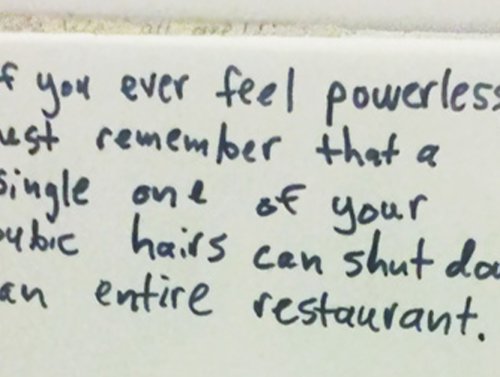 f you ever feel powerless
ust remember that a
single one of your
ubic hairs can shut do
an entire restaurant.